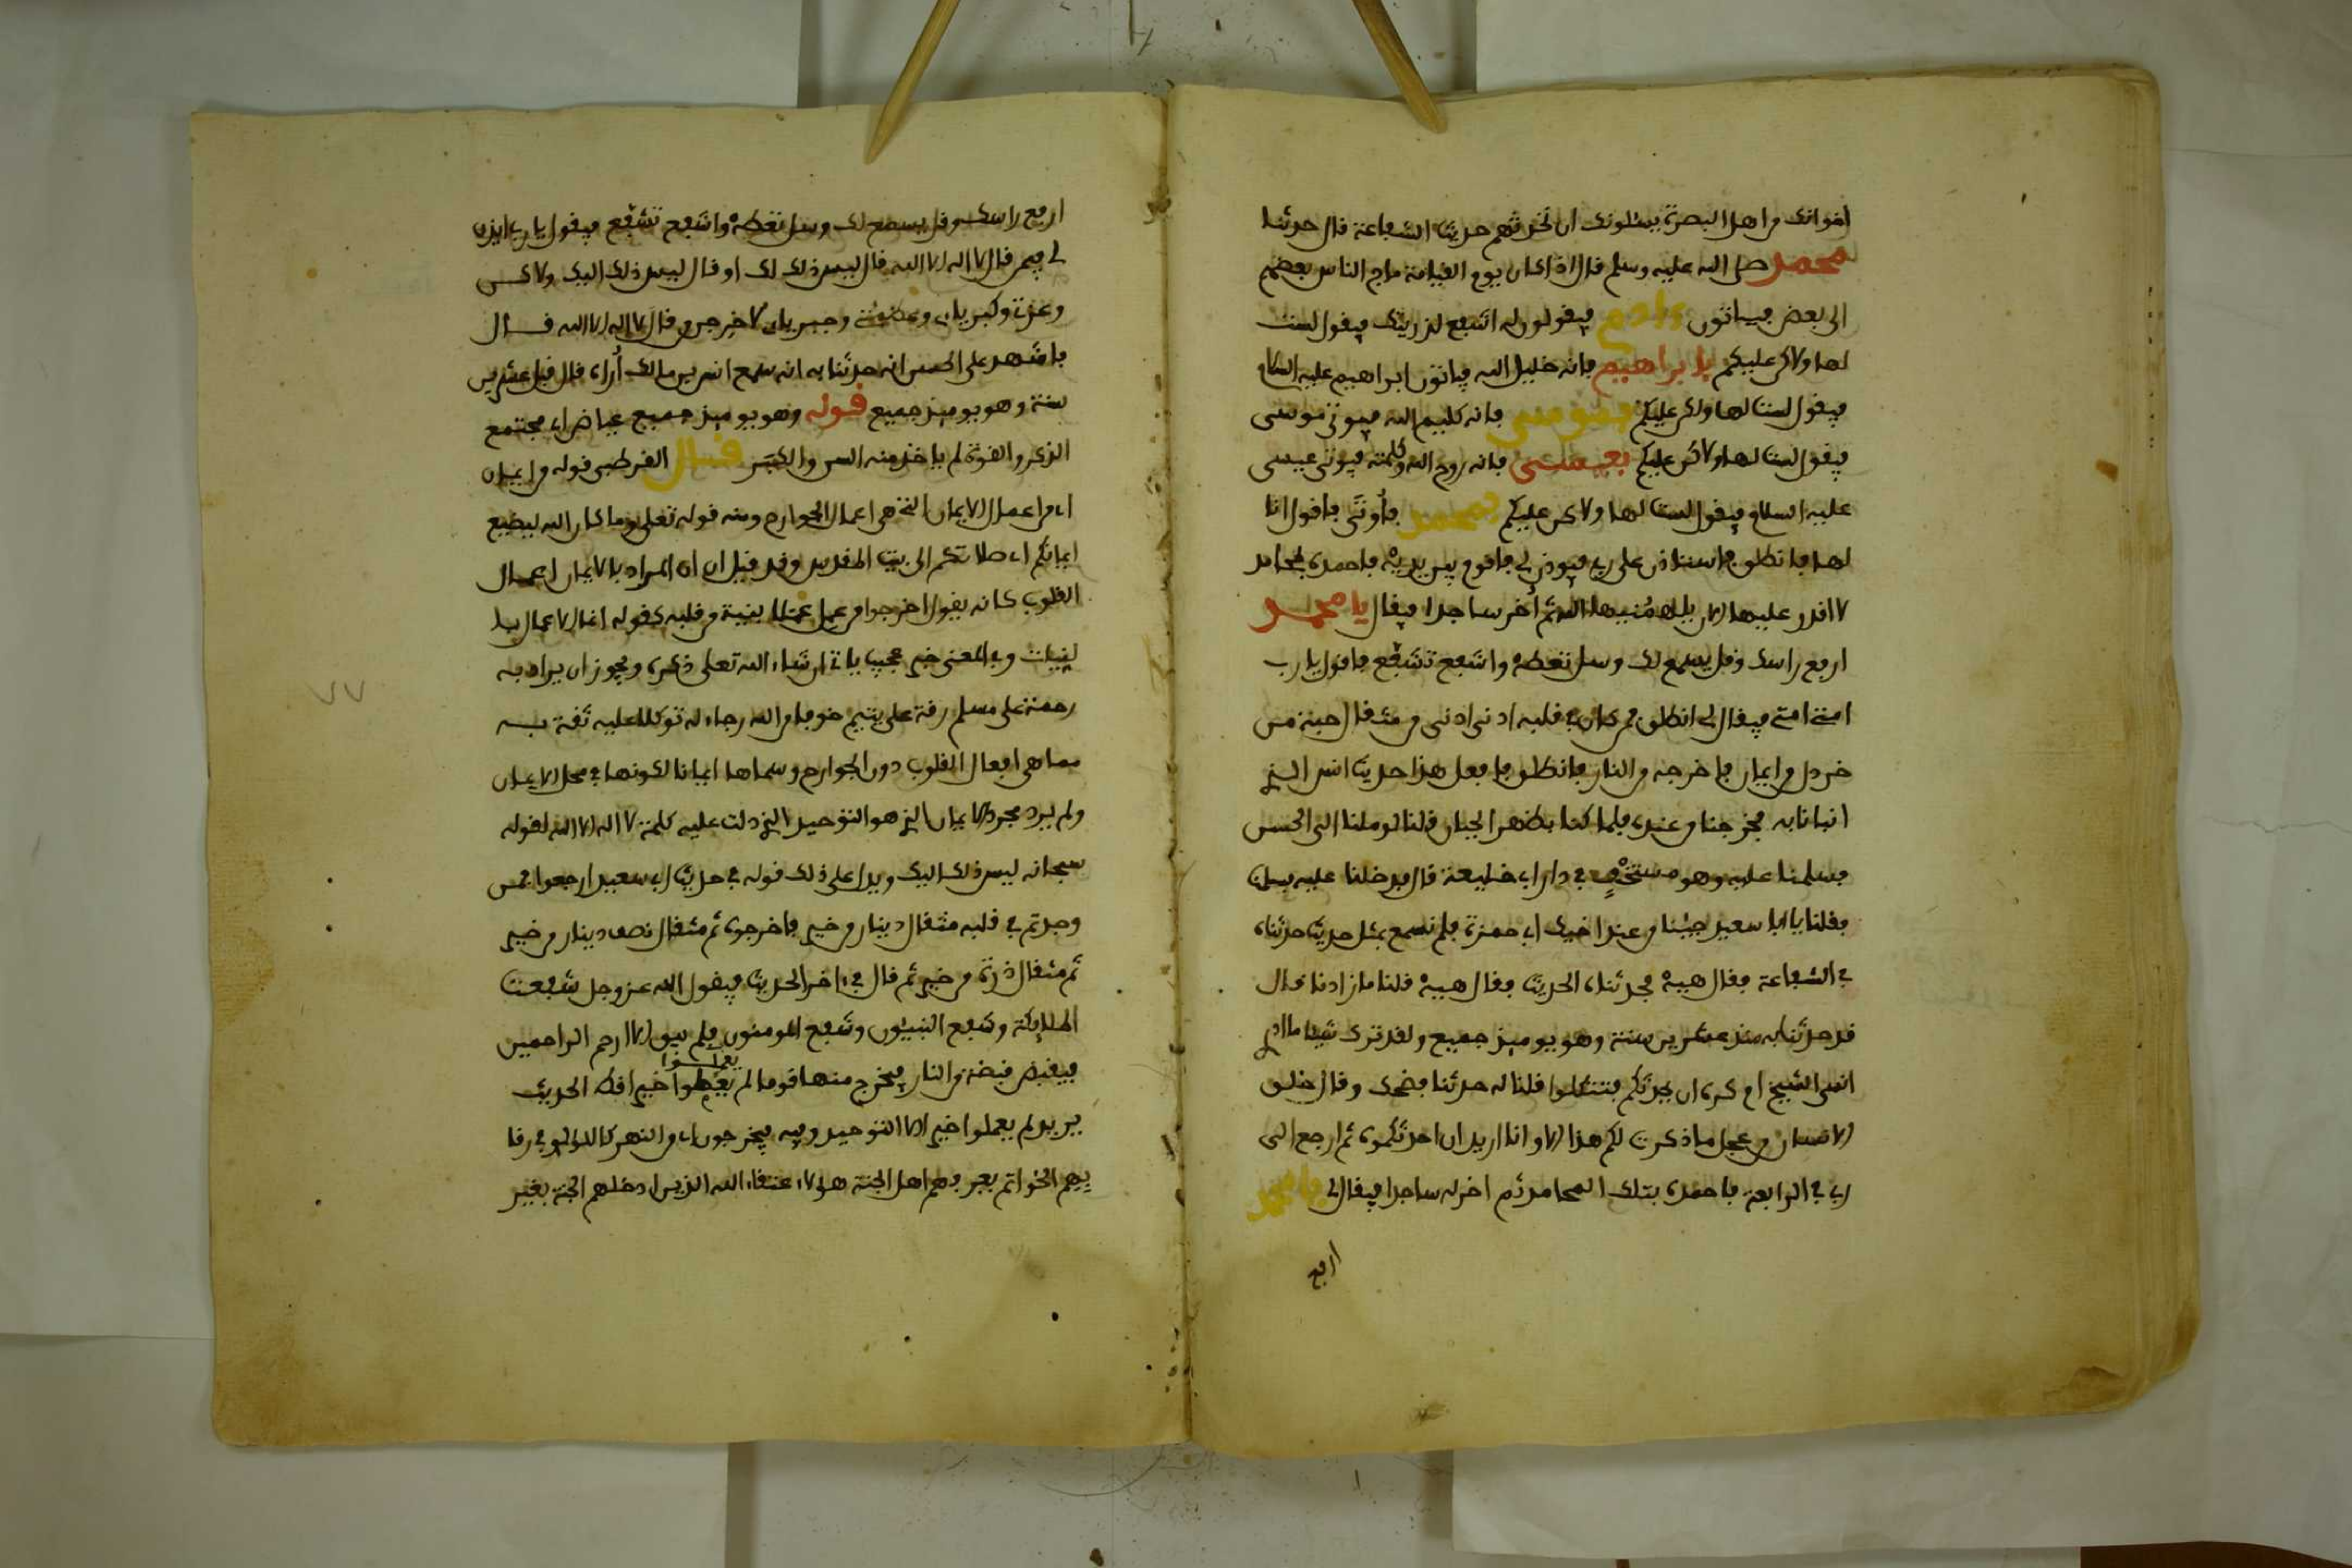 اخوانك من اهل البصرة يسئلونك ان تحدثهم حديث الشفاعة قال حدثنا
محمد صلى الله عليه وسلم قال اذا كان يوم القيامة ماج الناس بعضهم
الى بعض فيأتون ءادم فيقولون له اشفع لذريتك فيقول لست
لها ولاكن عليكم بإبراهيم فانه خليل الله فيأتون ابراهيم عليه السلام
فيقول لست لها ولكن عليكم بموسى فانه كليم الله فيوتى موسى
فيقول لست لها ولاكن عليكم بعيسى فانه روح الله وكلمته فيوتى عيسى
عليه السلام فيقول لست لها ولاكن عليكم بمحمد فأوتى فاقول انا
لها فانطلق فاستاذن على ربي فيوذن لي فاقوم بين يديه فاحمده بمحامد
لا اقدر عليها الان يلهمنيها الله ثم أخر ساجدا فيقال يا محمد
ارفع راسك وقل يسمع لك وسل تعطه واشفع تشفع فاقول يا رب
امتي امتي فيقال لي انطلق فمن كان في قلبه ادنى ادنى من مثقال حبة من
خردل من ايمان فاخرجه من النار فانطلق فافعل هذا حديث انس الذي
انبانا به فخرجنا من عنده فلما كنا بظهر الجبان قلنا لو ملنا الى الحسن
فسلمنا عليه وهو مستخف في دار ابي خليفة قال فدخلنا عليه فسلمنا
فقلنا يا ابا سعيد جئنا من عند اخيك ابي حمزة فلم نسمع بمثل حديث حدثناه
في الشفاعة فقال هيه فحدثناه الحديث فقال هيه قلنا ما زادنا قال
قد حدثنا به منذ عشرين سنة وهو يوميذ جميع ولقد ترك شيئا ما ادري
انسي الشيخ ام كره ان يحدثكم فتتكلوا قلنا له حدثنا فضحك وقال خلق
الانسان من عجل ما ذكرت لكم هذا الا وانا اريد ان احدثكموه ثم ارجع الى
ربي في الرابعة فاحمده بتلك المحامد ثم اخر له ساجدا فيقال لي يا محمد
ارفع
ارفع راسك وقل يسمع لك وسل تعطه واشفع تشفع فيقول يا رب ايذن
لي فيمن قال لا اله الا الله قال ليس ذلك لك او قال ليس ذلك اليك ولاكن
وعزتي وكبريائي وعظمتي وجبريائي لاخرجن من قال لا اله الا الله قال
فاشهد على الحسن انه حدثنا به انه سمع انس بن مالك أراه قال قبل عشرين
سنة وهو يوميذ جميع قوله وهو يوميذ جميع عياض اي مجتمع
الذكر والقوة لم ياخذ منه السن والكبر قال القرطبي قوله من ايمان
اي من اعمال الايمان التي هي اعمال الجوارح ومنه قوله تعلى وما كان الله ليضيع
ايمانكم اي صلاتكم الى بيت المقدس وقد قيل ان المراد بالايمان اعمال
القلوب كانه يقول اخرجوا من عمل عملا بنية من قلبه كقوله انما الاعمال بـا
لنيات وفي المعنى خبر عجيب ياتي ان شاء الله تعلى ذكره ويجوز ان يراد به
رحمة على مسلم رقة على يتيم خوفا من الله رجاء له توكلا عليه ثقة بـه
مما هي افعال القلوب دون الجوارح وسماها ايمانا لكونها في محل الايمان
ولم يرد مجرد الايمان الذي هو التوحيد الذي دلت عليه كلمة لا اله الا الله لقوله
سبحانه ليس ذلك اليك ويدل على ذلك قوله في حديث ابي سعيد ارجعوا فمن
وجدتم في قلبه مثقال دينار من خير فاخرجوه ثم مثقال نصف دينار من خير
ثم مثقال ذرة من خير ثم قال في ءاخر الحديث فيقول الله عز وجل شفعت
الملايكة وشفع النبيئون وشفع المومنون فلم يبق الا ارحم الراحمين
يعملوا
فيقبض قبضة من النار فيخرج منها قوما لم خيرا قط الحديث
يريد لم يعملوا خيرا الا التوحيد وفيه فيخرجون اي من النهر كاللؤلؤ في رقا
بهم الخواتم يعرفهم اهل الجنة هولاء عتقاء الله الذين ادخلهم الجنة بغير